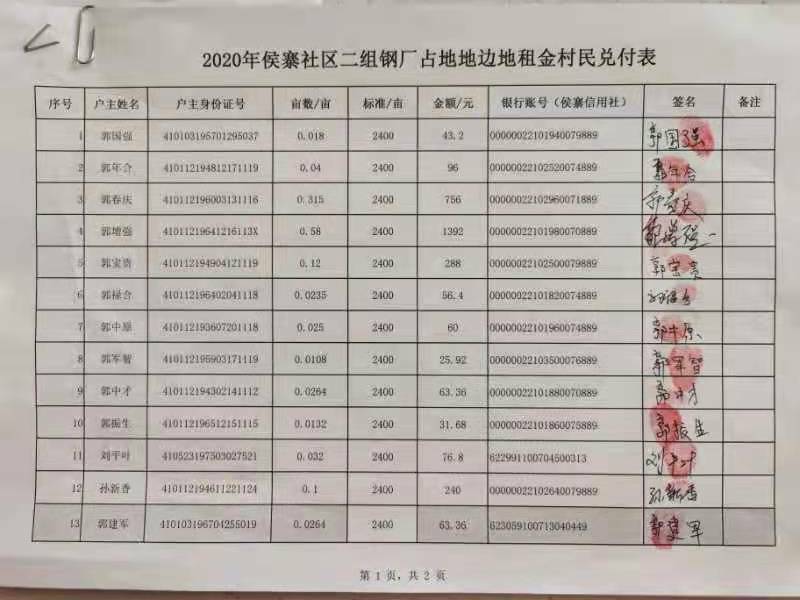 2020年侯寨社区二组钢厂占地地边地租金村民兑付表
序号 户主姓名 户主身份证号 亩数/亩 标准/亩 金额/元 银行账号（侯寨信用社） 签名 备注
1 郭国强 410103195701295037 0.018 2400 43.2 00000022101940079889 郭国强
2 郭年合 410112194812171119 0.04 2400 96 00000022102520074889 郭年合
3 郭春庆 410112196003131116 0.315 2400 756 00000022102960071889 郭春庆
4 郭增强 41011219641216113X 0.58 2400 1392 00000022101980070889 郭增强
5 郭宝贵 410112194904121119 0.12 2400 288 00000022102500079889 郭宝贵
6 郭禄合 410112196402041118 0.0235 2400 56.4 00000022101820074889
7 郭中原 410112193607201118 0.025 2400 60 00000022101960074889 郭中原
8 郭军智 410112195903171119 0.0108 2400 25.92 00000022103500076889 郭军智
9 郭中才 410112194302141112 0.0264 2400 63.36 00000022101880070889 郭中才
10 郭振生 410112196512151115 0.0132 2400 31.68 00000022101860075889 郭振生
11 刘平叶 410523197503027521 0.032 2400 76.8 622991100704500313 刘平叶
12 孙新香 410112194611221124 0.1 2400 240 00000022102640079889 孙新香
13 郭建军 410103196704255019 0.0264 2400 63.36 623059100713040449 郭建军
第 1 页，共 2 页